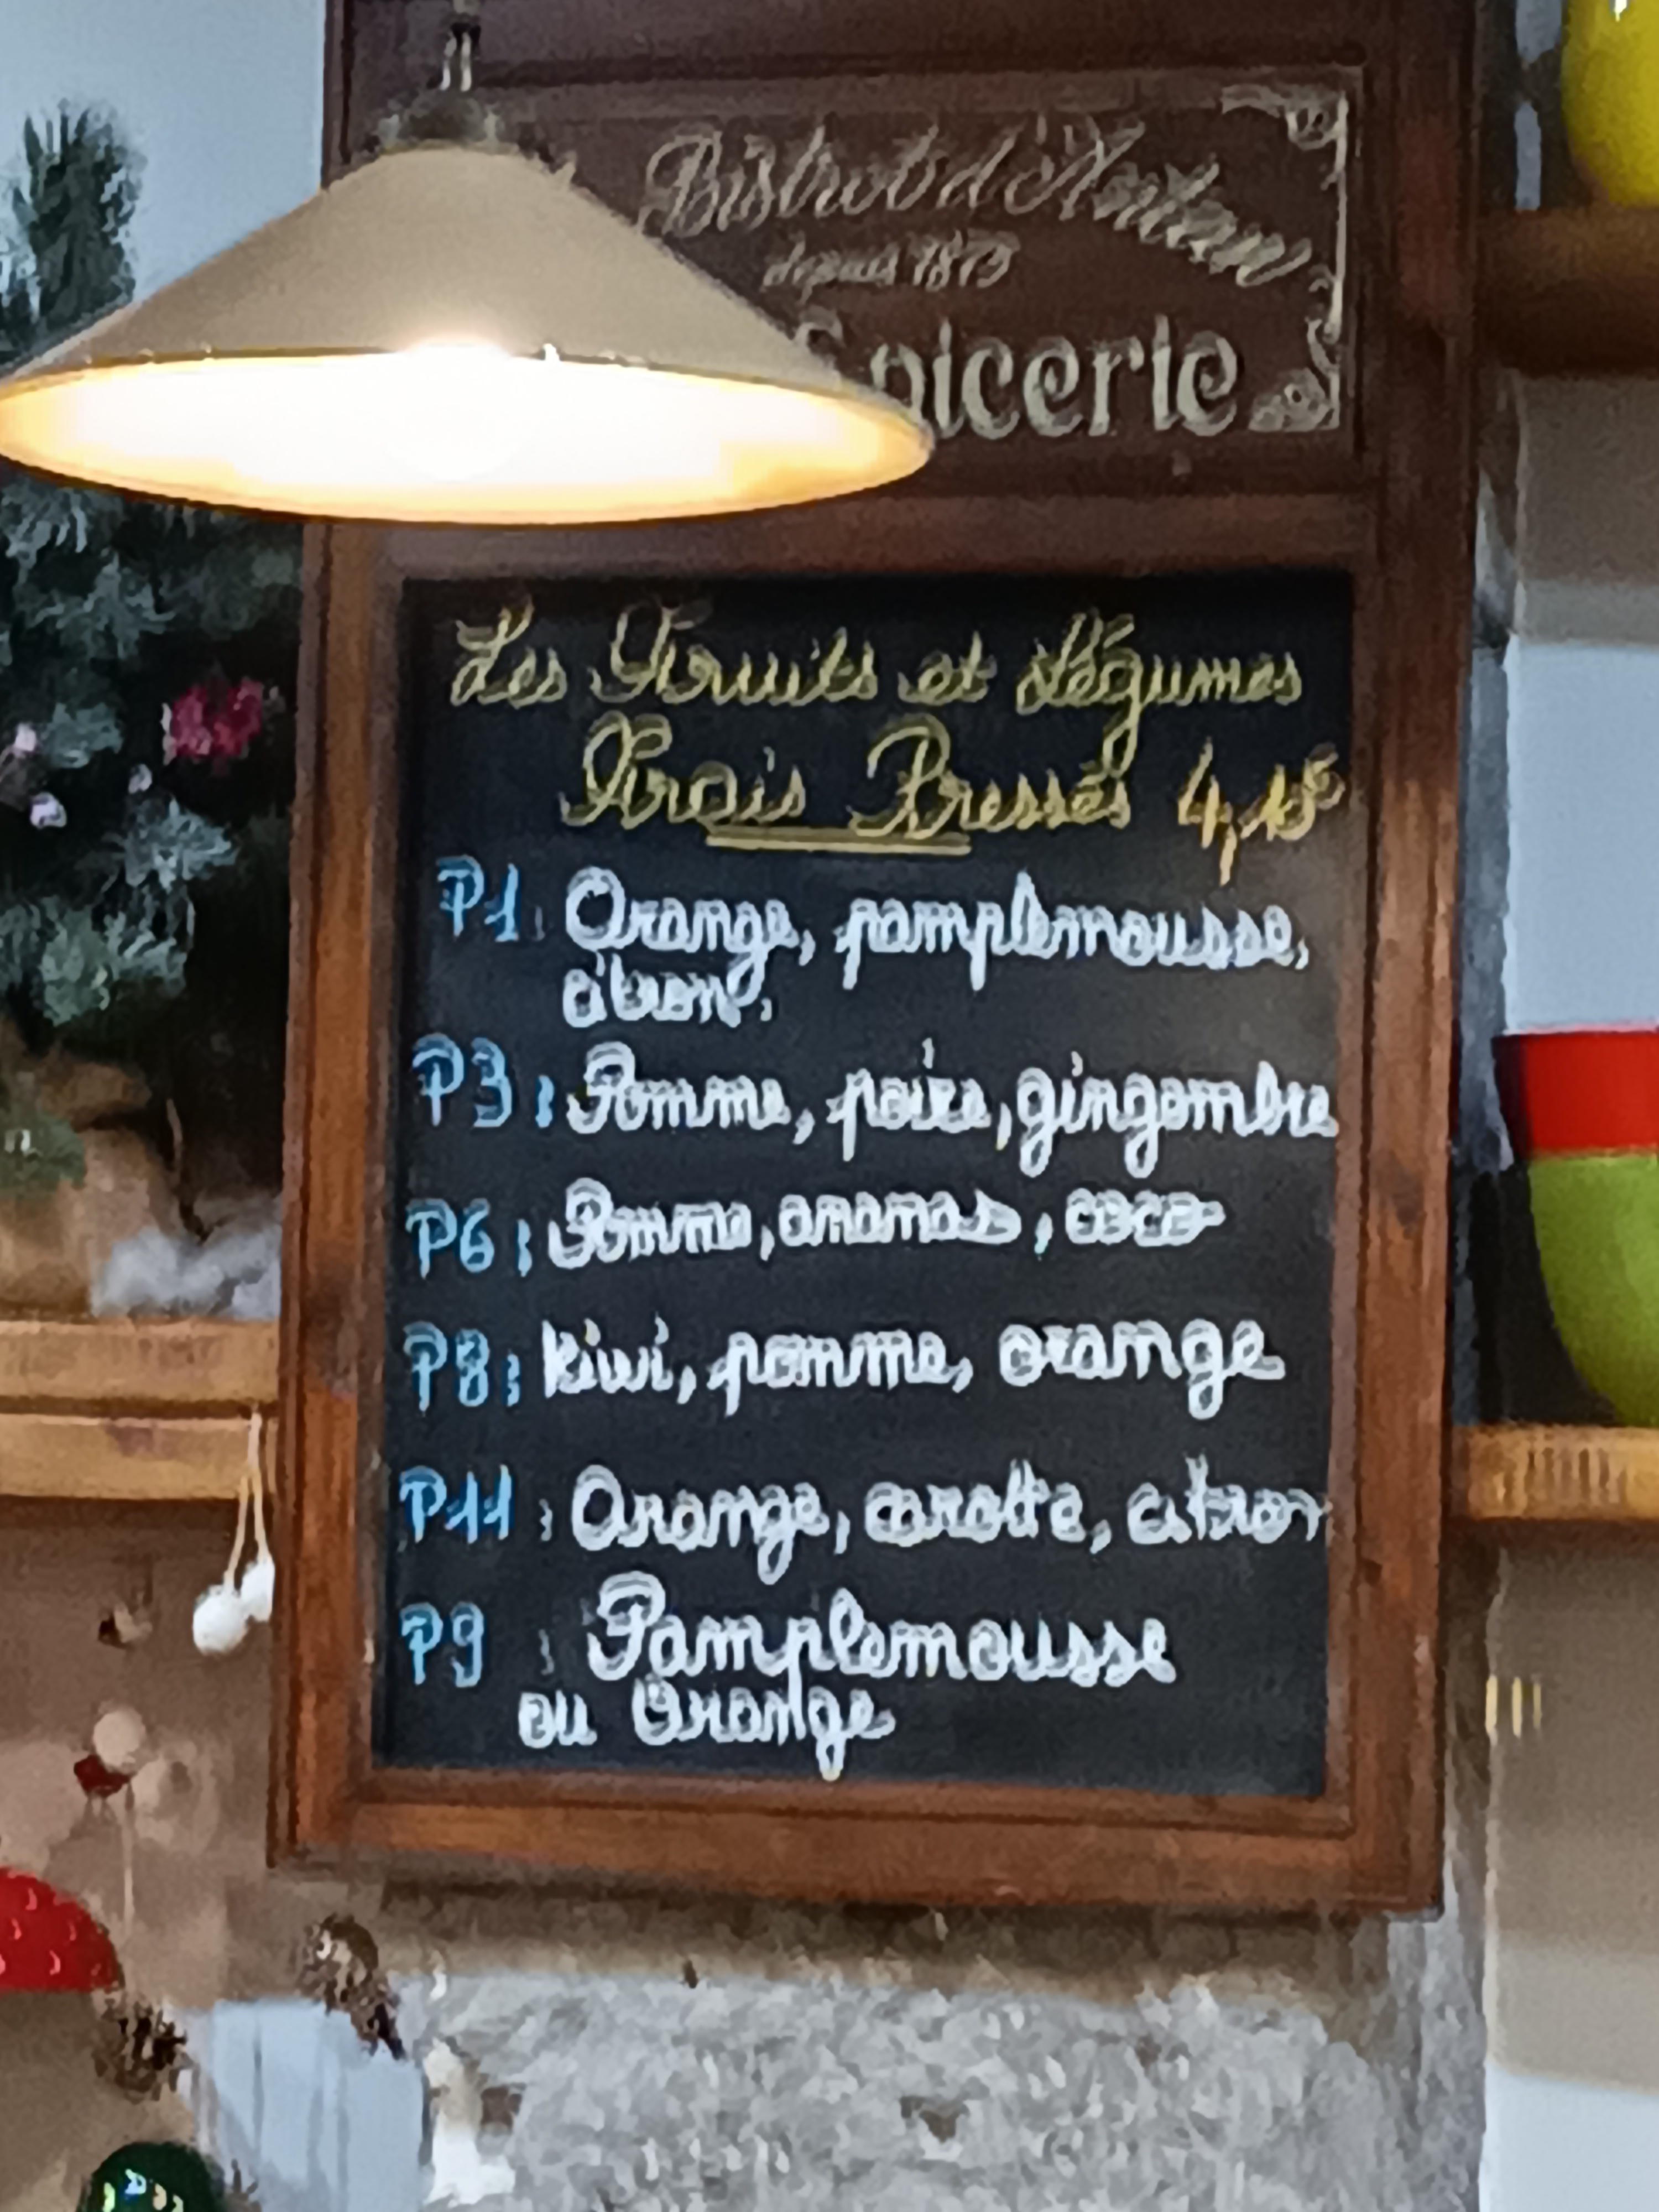 Bistrot d'Antan
depuis 1873
Epicerie
Les Fruits et Légumes
Frais Pressés
P1: Orange, pamplemousse,
citron.
P3: Pomme, poire, gingembre
P6: Pomme, ananas, coco
P8: kiwi, pomme, orange
P11: Orange, carotte, citron
P9: Pamplemousse
ou Orange